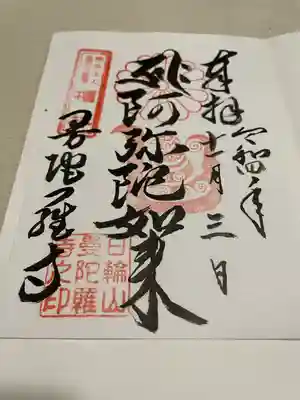 令和四年
奉拝 十一月三日
阿弥陀如来
曼陀羅寺
日輪山
曼陀羅
寺之印